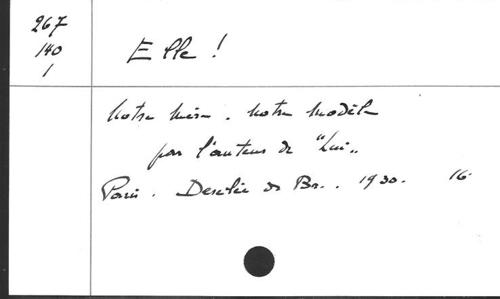 267
140
1
Elle !
Notre mère. notre modèle
par l'auteur de "Lui„
Paris. Desclée de Br.. 1930. 16